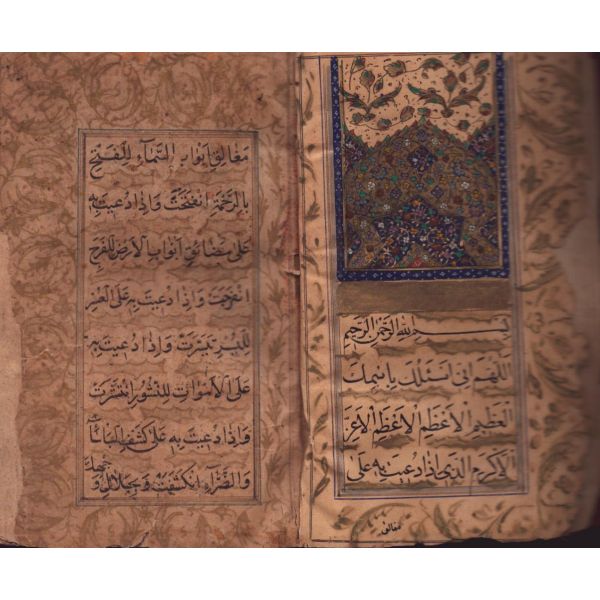 بسم الله الرحمن الرحيم
اللهم اني اسئلك باسمك
العظيم الاعظم الاعظم الاعز
الاكرم الذي اذا دعيت به على
مغالق
مغالق ابواب السماء للفتح
بالرحمة انفتحت واذا دعيت به
على مضائق ابواب الارض للفرج
انفرجت واذا دعيت به على العسر
لليسر تيسرت واذا دعيت به
على الاموات للنشور انتشرت
واذا دعيت به على كشف الباساء
والضراء انكشفت وبجلال وجهك